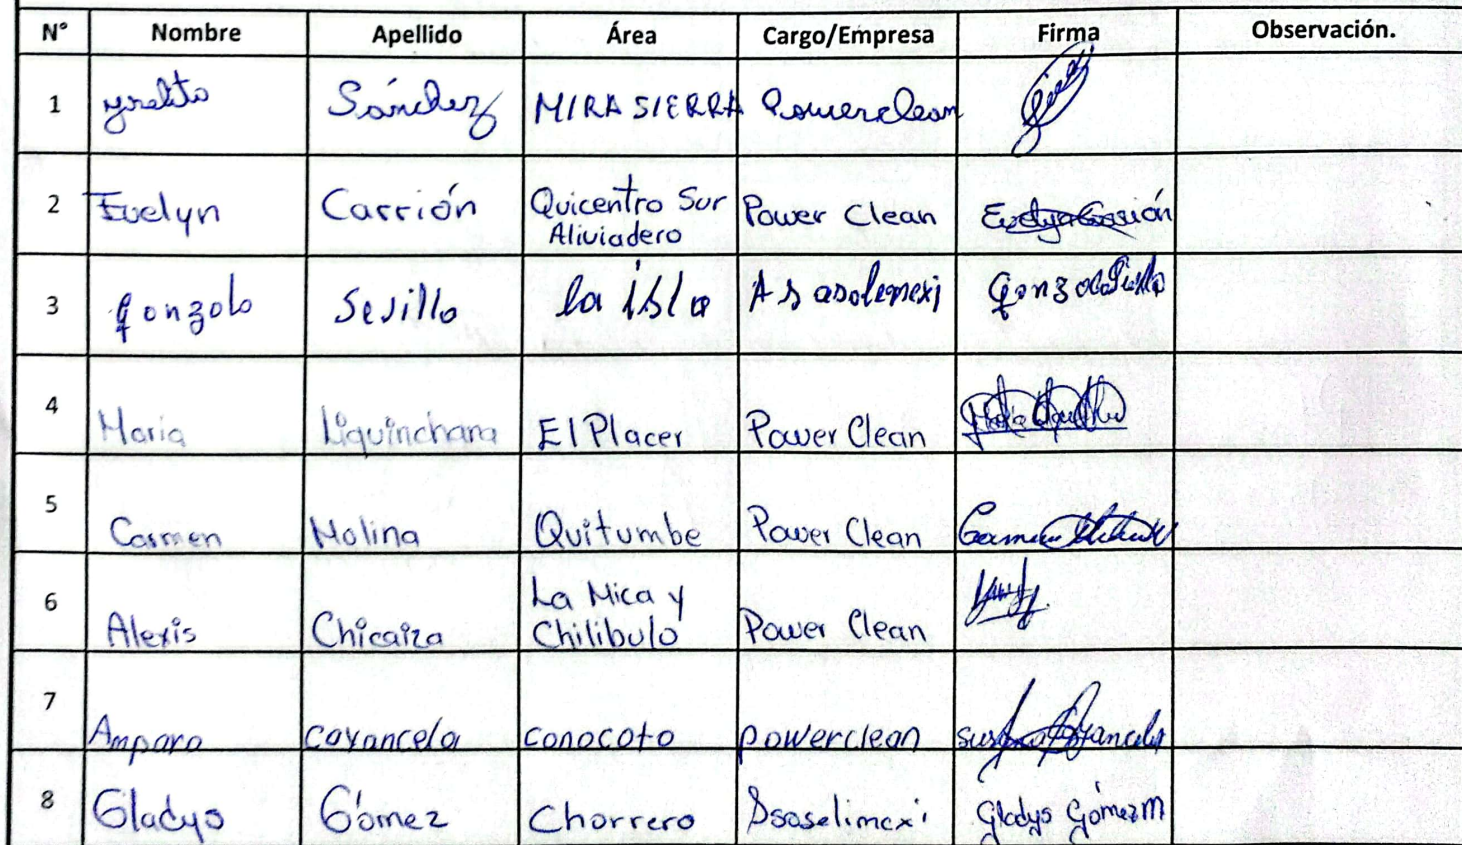 N° Nombre Apellido Área Cargo/Empresa Firma Observación.
1 Sánchez MIRA SIERRA Powerclean
2 Evelyn Carrión Quicentro Sur Aliviadero Power Clean Evelyn Carrión
3 Gonzalo Sevillo la isla Gonzalo
4 Maria Liquinchana El Placer Power Clean
5 Carmen Molina Quitumbe Power Clean Carmen
6 Alexis Chicaiza La Mica y Chilibulo Power Clean
7 Amparo Coyancela Conocoto powerclean
8 Gladys Gómez Chorrero Gladys Gómez M